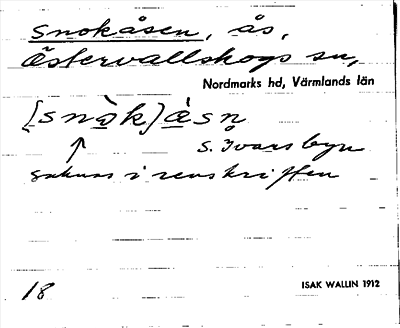 Snokåsen, ås,
Östervallskogs sn,
Nordmarks hd, Värmlands län
[snòk]åsn̥
S. Ivarsbyn
saknas i renskriften
18
ISAK WALLIN 1912